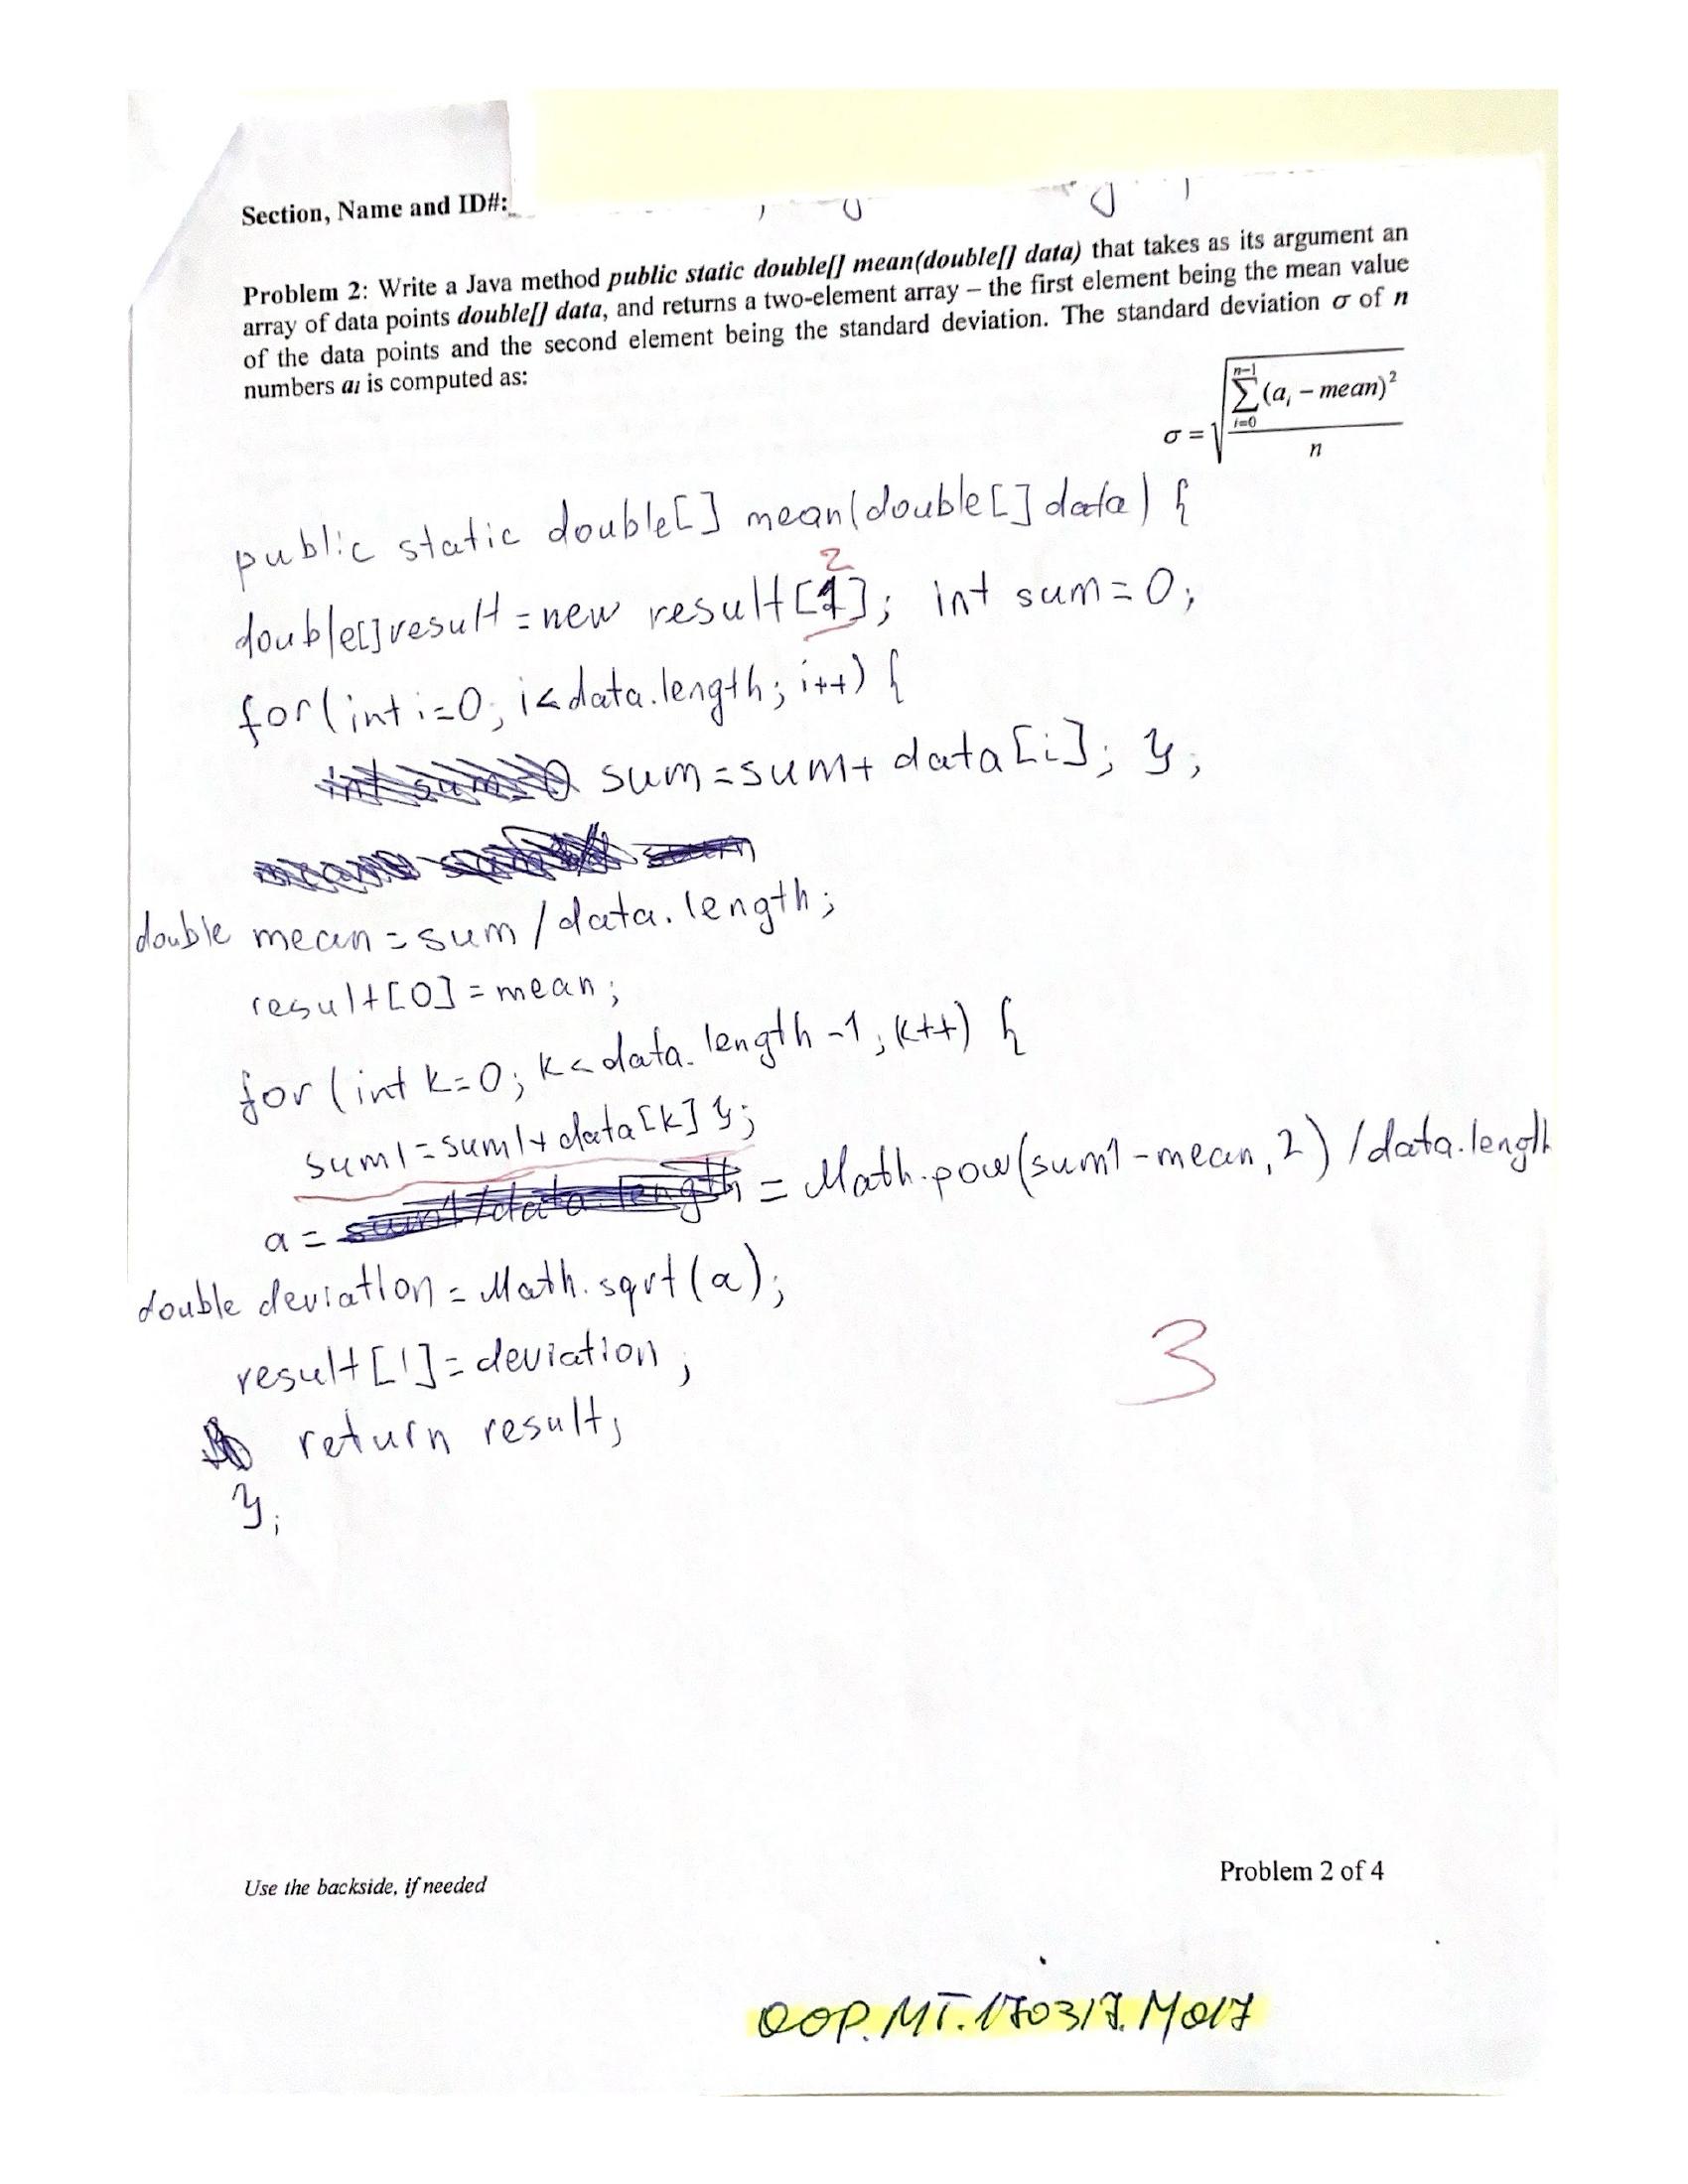 Section, Name and ID#:
Problem 2: Write a Java method public static double[] mean(double[] data) that takes as its argument an
array of data points double[] data, and returns a two-element array – the first element being the mean value
of the data points and the second element being the standard deviation. The standard deviation σ of n
numbers ai is computed as:
σ = √(∑_{i=0}^{n-1} (a_i – mean)² / n)
public static double[] mean(double[] data) {
2
double[] result = new result[1]; int sum = 0;
for (int i=0; i<data.length; i++) {
sum = sum + data[i]; };
double mean = sum / data.length;
result[0] = mean;
for (int k=0; k<data.length -1; k++) {
sum1 = sum1 + data[k] };
a = = Math.pow(sum1 - mean, 2) / data.length
double deviation = Math.sqrt(a);
result[1] = deviation;
3
return result;
};
Use the backside, if needed
Problem 2 of 4
OOP.MT.170317.M017